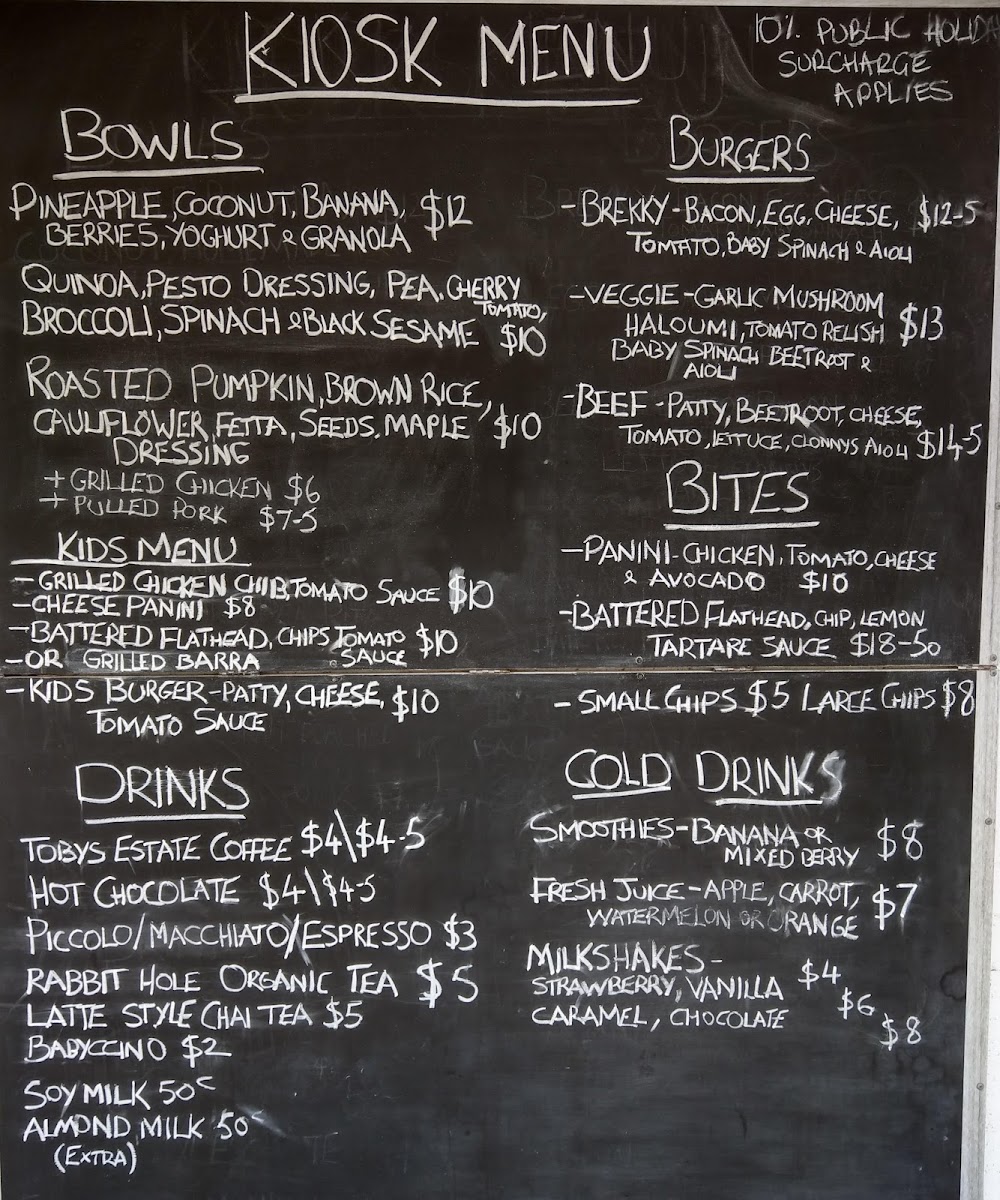 KIOSK MENU
10% PUBLIC HOLIDA
SURCHARGE
APPLIES
BOWLS
PINEAPPLE, COCONUT, BANANA, $12
BERRIES, YOGHURT & GRANOLA
QUINOA, PESTO DRESSING, PEA, CHERRY
TOMATO,
BROCCOLI, SPINACH & BLACK SESAME $10
ROASTED PUMPKIN, BROWN RICE,
CAULIFLOWER, FETTA, SEEDS. MAPLE $10
DRESSING
+ GRILLED CHICKEN $6
+ PULLED PORK $7-5
KIDS MENU
- GRILLED CHICKEN CHIB, TOMATO SAUCE $10
- CHEESE PANINI $8
- BATTERED FLATHEAD, CHIPS TOMATO $10
- OR GRILLED BARRA SAUCE
- KIDS BURGER - PATTY, CHEESE, $10
TOMATO SAUCE
DRINKS
TOBYS ESTATE COFFEE $4\$4-5
HOT CHOCOLATE $4\$4-5
PICCOLO/MACCHIATO/ESPRESSO $3
RABBIT HOLE ORGANIC TEA $5
LATTE STYLE CHAI TEA $5
BABYCCINO $2
SOY MILK 50c
ALMOND MILK 50c
(EXTRA)
BURGERS
- BREKKY - BACON, EGG, CHEESE, $12-5
TOMATO, BABY SPINACH & AIOLI
- VEGGIE - GARLIC MUSHROOM
HALOUMI, TOMATO RELISH $13
BABY SPINACH BEETROOT &
AIOLI
- BEEF - PATTY, BEETROOT, CHEESE,
TOMATO, LETTUCE, CLONNYS AIOLI $14-5
BITES
- PANINI - CHICKEN, TOMATO, CHEESE
& AVOCADO $10
- BATTERED FLATHEAD, CHIP, LEMON
TARTARE SAUCE $18-50
- SMALL CHIPS $5 LARGE CHIPS $8
COLD DRINKS
SMOOTHIES - BANANA OR $8
MIXED BERRY
FRESH JUICE - APPLE, CARROT, $7
WATERMELON OR ORANGE
MILKSHAKES -
STRAWBERRY, VANILLA $4
$6
CARAMEL, CHOCOLATE $8